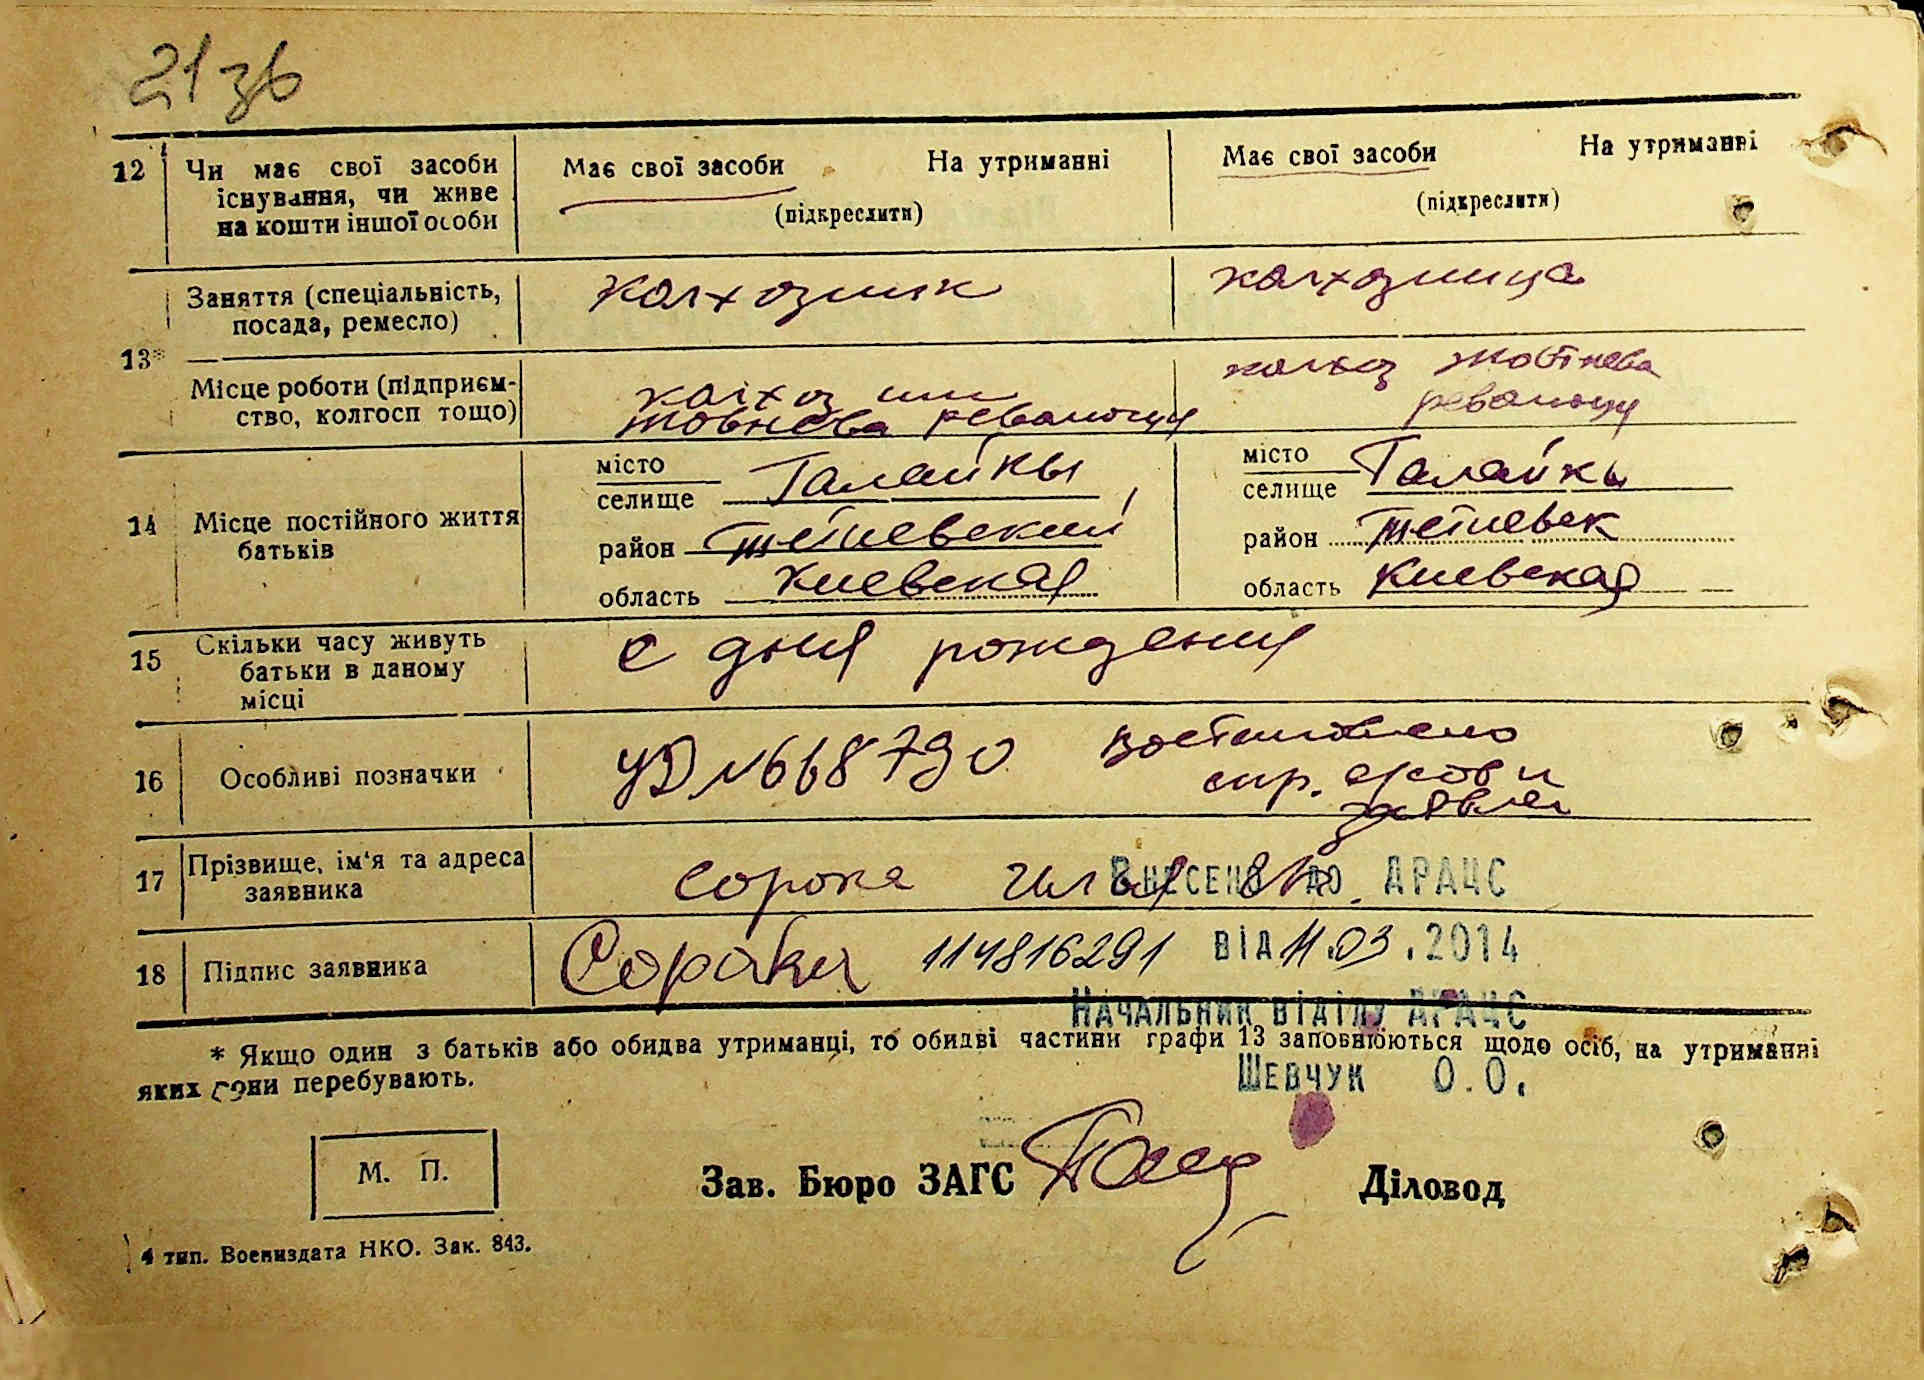 21 зв
12 Чи має свої засоби існування, чи живе на кошти іншої особи
Має свої засоби На утриманні
(підкреслити)
Має свої засоби На утриманні
(підкреслити)
13*
Заняття (спеціальність, посада, ремесло)
колхозник
колхозница
Місце роботи (підприєм-
ство, колгосп тощо)
колхоз им
Жовтнева революция
колхоз Жовтнева
революция
14 Місце постійного життя батьків
місто
селище Галайкы
район Тетиевский
область Киевская
місто
селище Галайкы
район Тетиевск
область Киевская
15 Скільки часу живуть
батьки в даному
місці
с дня рождения
16 Особливі позначки
УД №668790 Востановлено
спр.
заявл
17 Прізвище, ім'я та адреса
заявника
Сорока Илья
Внесено до ДРАЦС
18 Підпис заявника
Сорока 114816291 від 11.03.2014
Начальник відділу ДРАЦС
* Якщо один з батьків або обидва утриманці, то обидві частини графи 13 заповнюються щодо осіб, на утриманні
яких вони перебувають.
Шевчук О.О.
М. П.
Зав. Бюро ЗАГС
Діловод
4 тип. Воениздата НКО. Зак. 843.